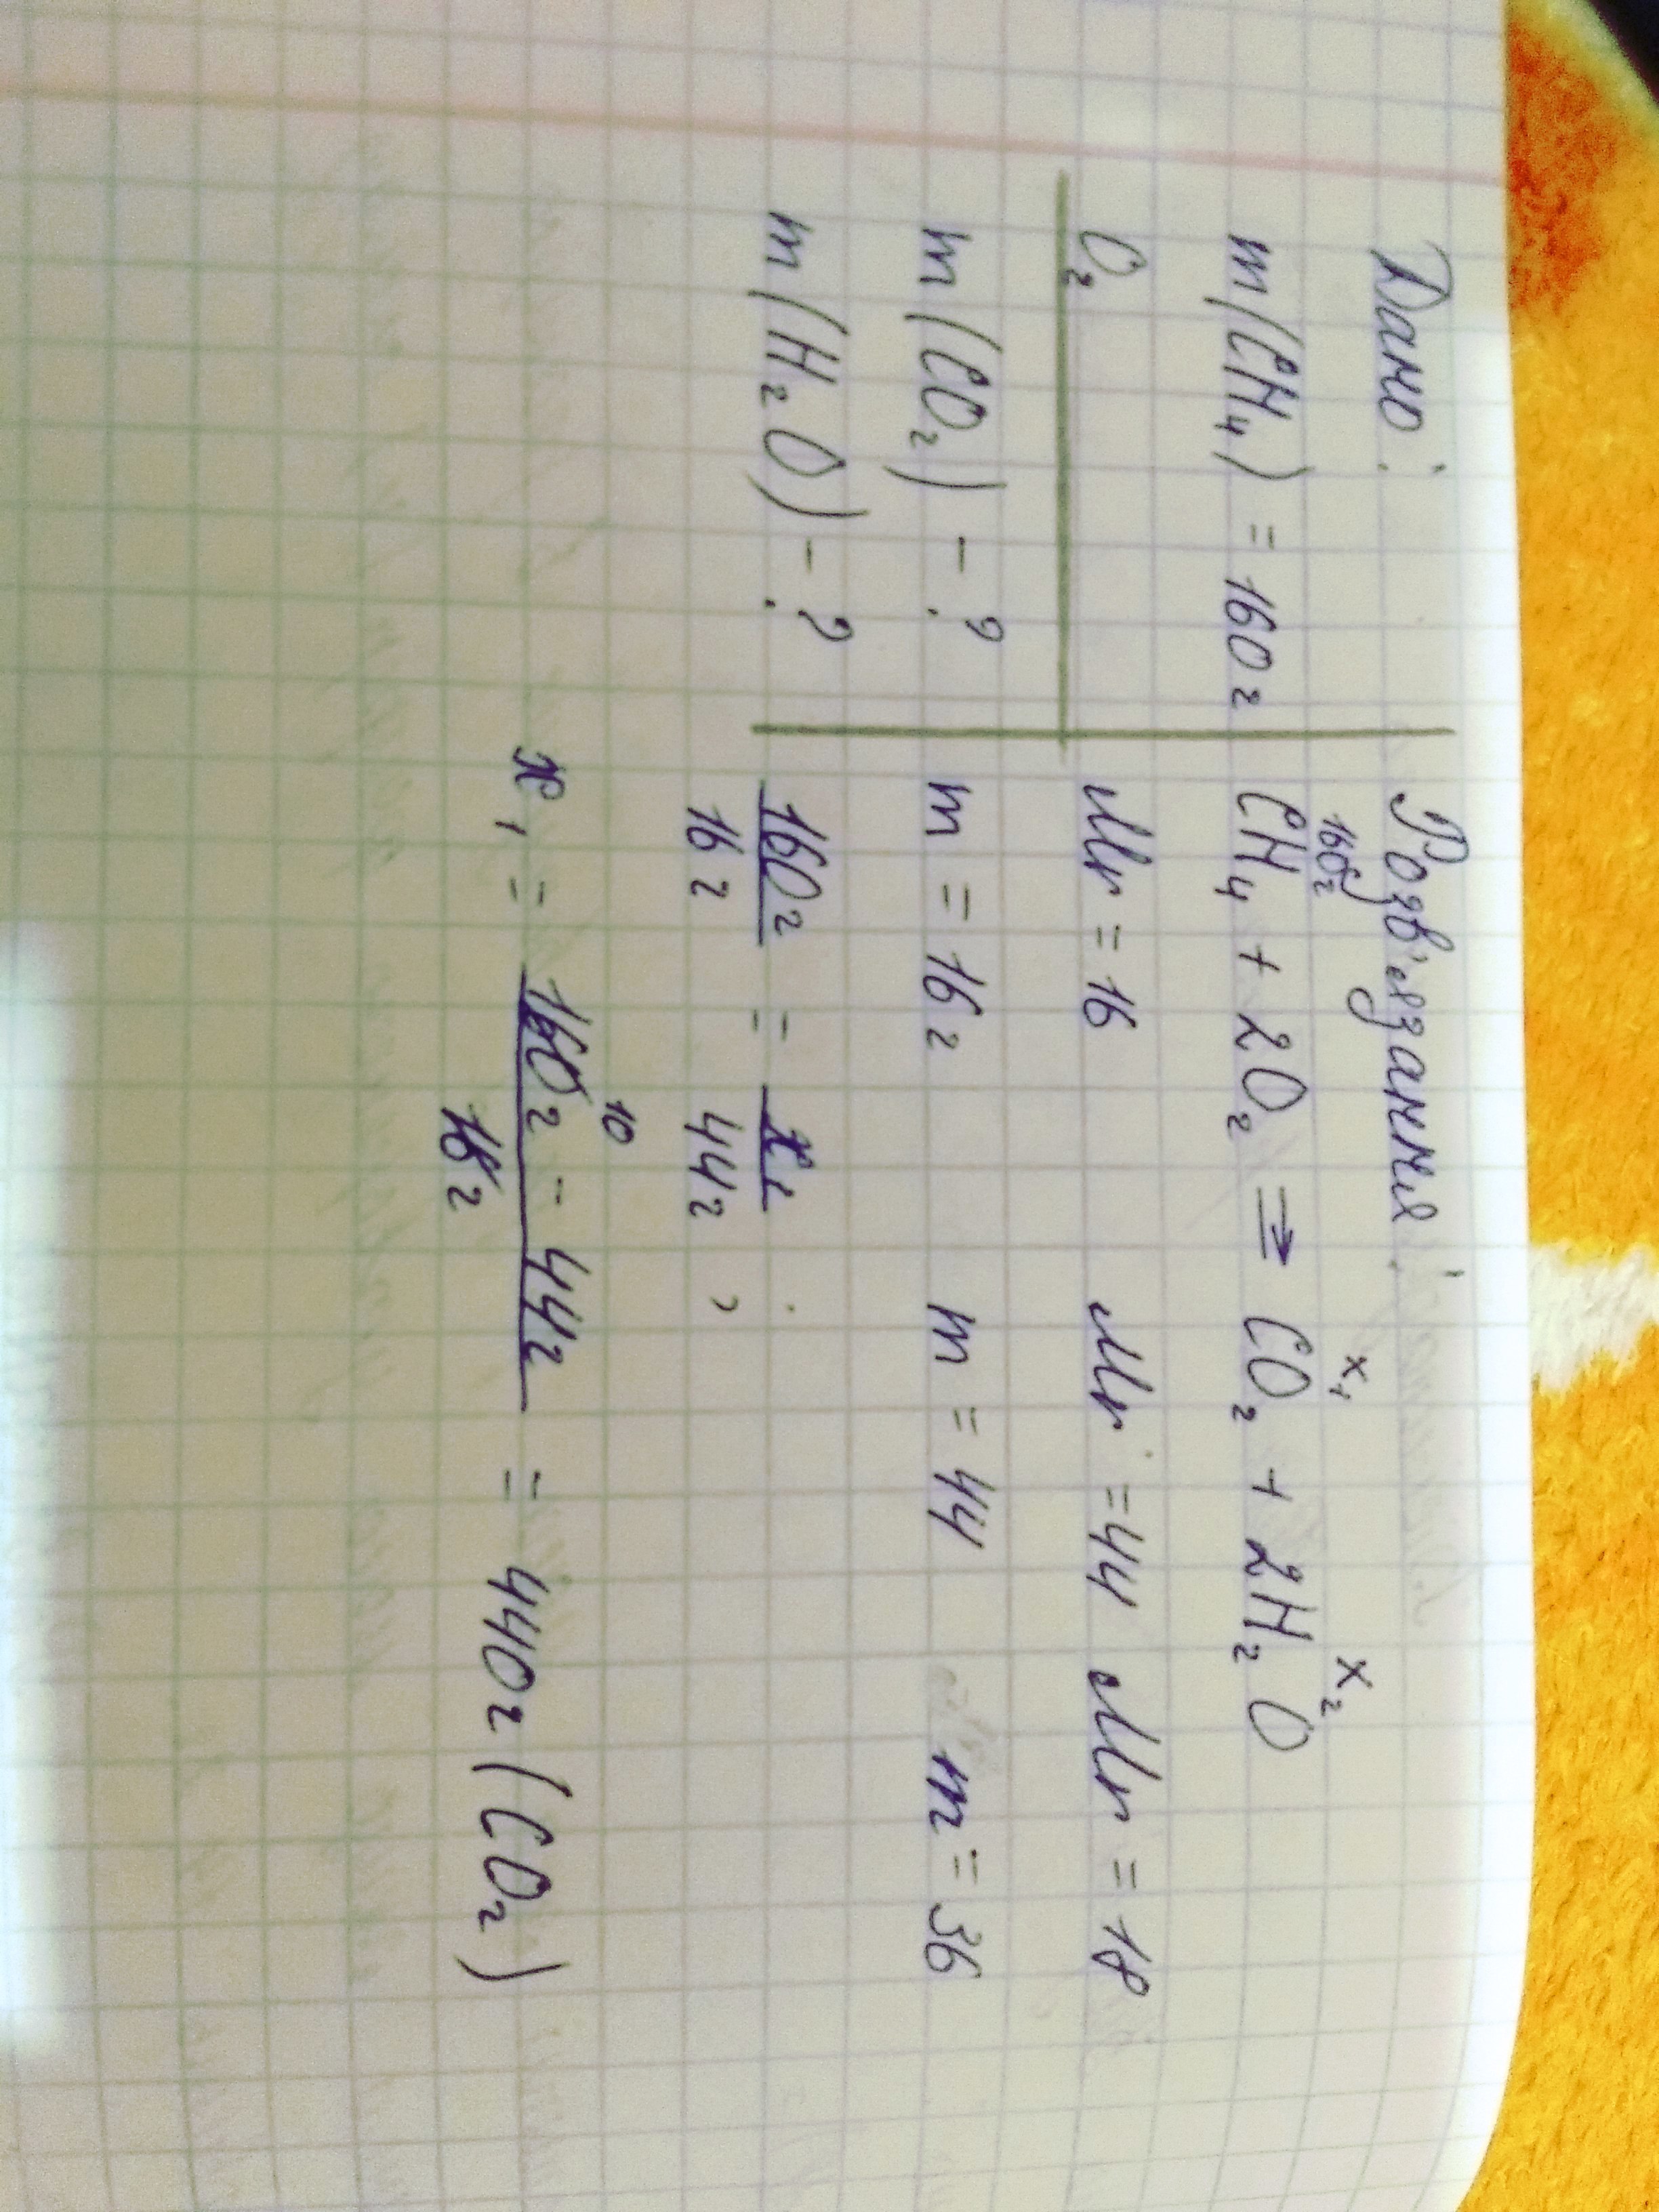 Дано:
m(CH₄) = 160г
O₂
m(CO₂) - ?
m(H₂O) - ?
Розв'язання:
160г x₁ x₂
CH₄ + 2O₂ ⇒ CO₂ + 2H₂O
Mr = 16 Mr = 44 Mr = 18
m = 16г m = 44 m = 36
160г = x₁
16г 44г ;
10
x₁ = 160г - 44г = 440г (CO₂)
16г